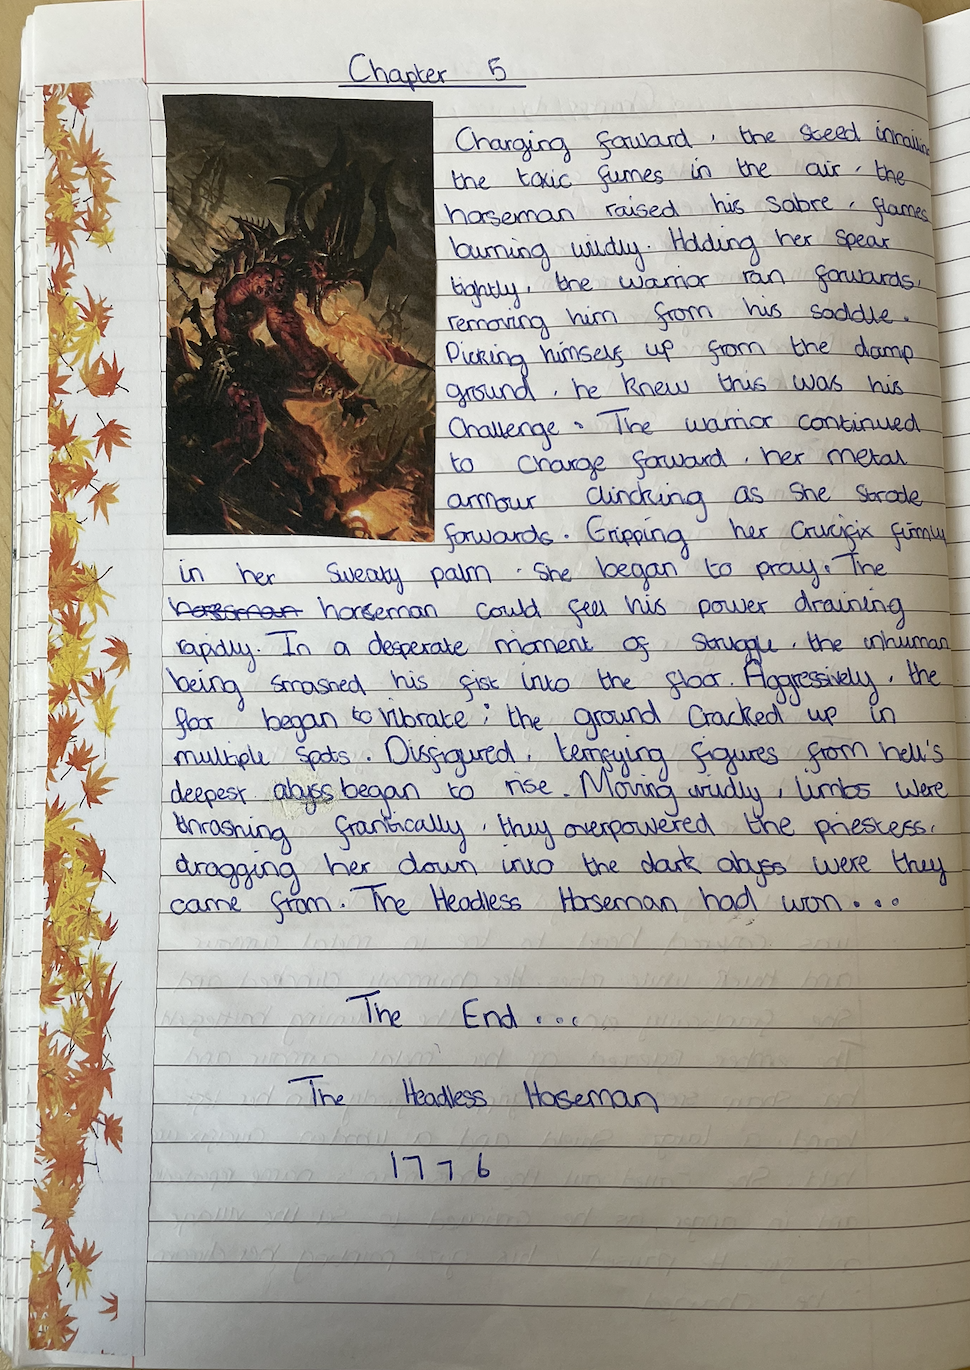 Chapter 5
Charging forward, the steed inhaling
the toxic fumes in the air, the
horseman raised his sabre, flames
burning wildly. Holding her spear
tightly, the warrior ran forwards,
removing him from his saddle.
Picking himself up from the damp
ground, he knew this was his
Challenge. The warrior continued
to charge forward, her metal
armour clincking as she strode
forwards. Gripping her crucifix firmly
in her sweaty palm. She began to pray. The
horseman could feel his power draining
rapidly. In a desperate moment of struggle, the inhuman
being smashed his fist into the floor. Aggressively, the
floor began to vibrate; the ground cracked up in
multiple spots. Disfigured, terrifying figures from hell's
deepest abyss began to rise. Moving wildly, limbs were
thrashing frantically, they overpowered the priestess,
dragging her down into the dark abyss were they
came from. The Headless Horseman had won...
The End...
The Headless Hoseman
1776